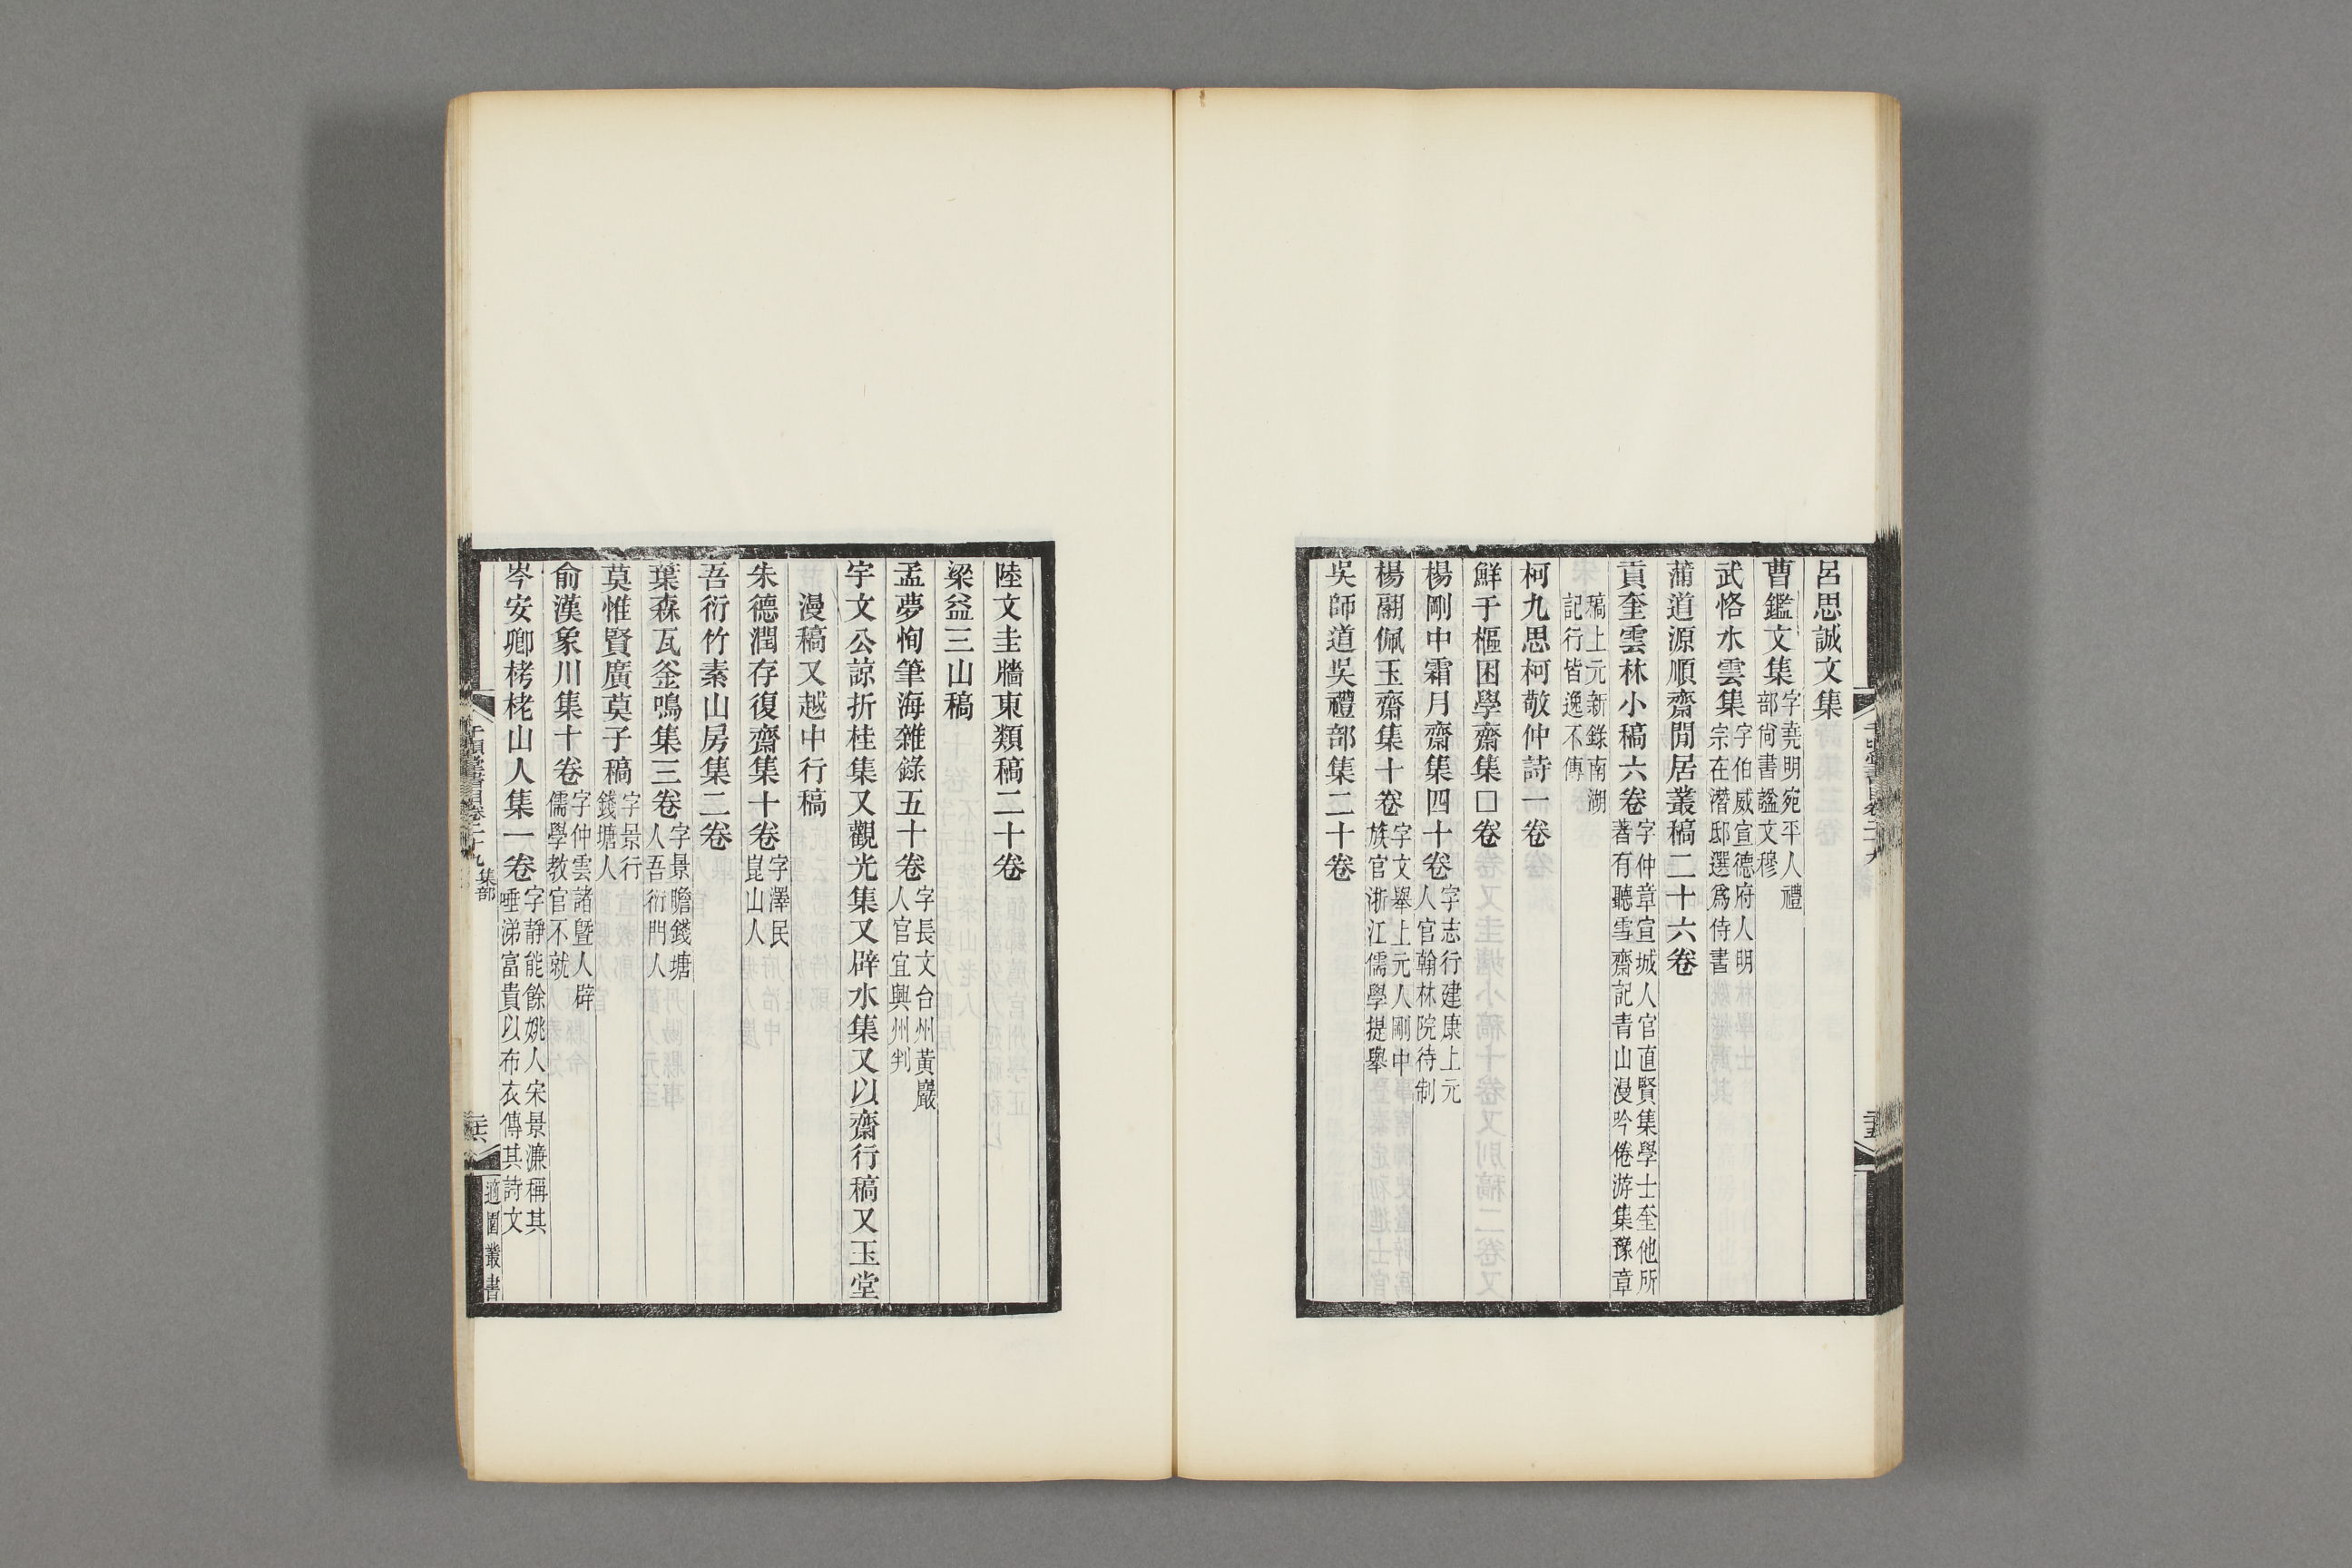 呂思誠文集
曹鑑文集字堯明宛平人禮部尙書諡文穆
武恪水雲集字伯威宣德府人明宗在潛邸選爲侍書
蒲道源順齋閒居叢稿二十六卷
貢奎雲林小稿六卷字仲章宣城人官直賢集學士奎他所著有聽雪齋記青山漫吟倦游集豫章
稿上元新錄南湖記行皆逸不傳
柯九思柯敬仲詩一卷
鮮于樞困學齋集□卷
楊剛中霜月齋集四十卷字志行建康上元人官翰林院待制
楊翮佩玉齋集十卷字文舉上元人剛中族官浙江儒學提舉
吳師道吳禮部集二十卷
陸文圭牆東類稿二十卷
梁益三山稿
孟夢恂筆海雜錄五十卷字長文台州黃巖人官宜興州判
宇文公諒折桂集又觀光集又辟水集又以齋行稿又玉堂
漫稿又越中行稿
朱德潤存復齋集十卷字澤民崑山人
吾衍竹素山房集二卷
葉森瓦釜鳴集三卷字景瞻錢塘人吾衍門人
莫惟賢廣莫子稿字景行錢塘人
俞漢象川集十卷字仲雲諸曁人辟儒學教官不就
岑安卿栲栳山人集一卷字靜能餘姚人宋景濂稱其唾涕富貴以布衣傳其詩文
千頃堂書目卷二十九 集部
二十六
適園叢書